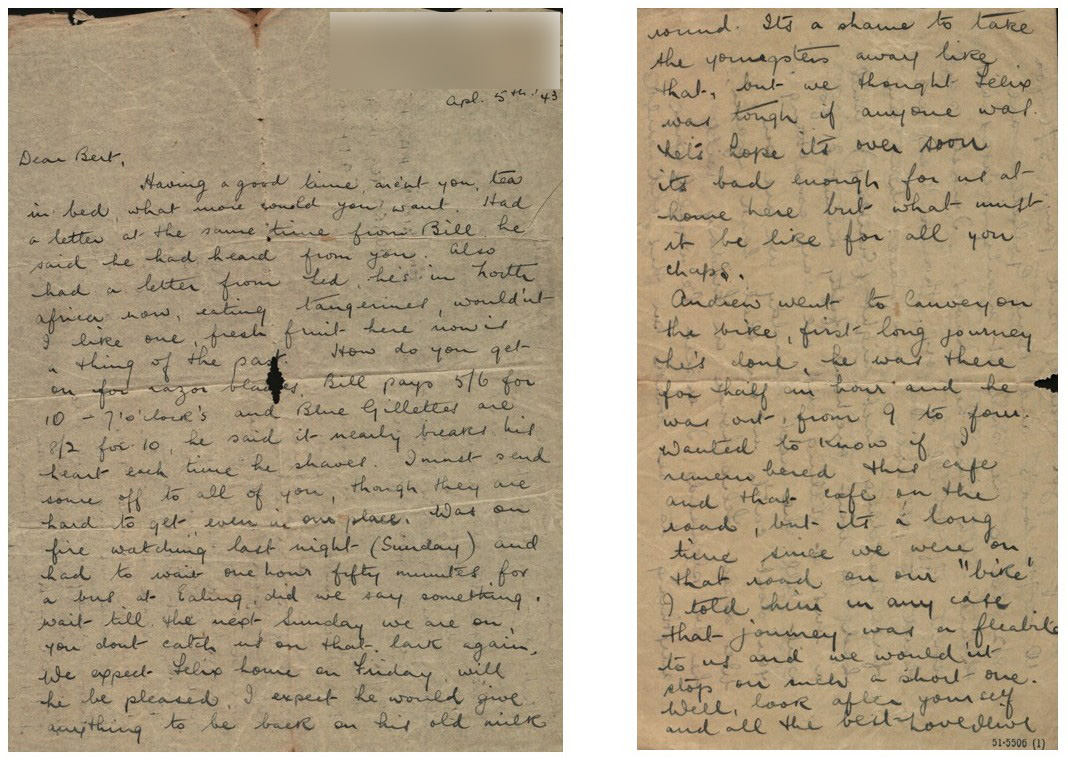 Apl. 5th '43
Dear Bert,
Having a good time, are'nt you, tea
in bed, what more would you want. Had
a letter at the same time from Bill, he
said he had heard from you. Also
had a letter from Ted, he's in North
Africa now, eating tangerines, would'nt
I like one, fresh fruit here now is
a thing of the past. How do you get
on for razor blades, Bill pays 5/6 for
10 - 7 o'clock's and Blue Gillettes are
8/2 for 10, he said it nearly breaks his
heart each time he shaves. I must send
some off to all of you, though they are
hard to get, even in our place. Was on
fire watching last night (Sunday) and
had to wait one hour fifty minutes for
a bus at Ealing, did we say something,
wait till the next Sunday we are on,
you dont catch us on that lark again.
We expect Felix home on Friday, will
he be pleased, I expect he would give
anything to be back on his old milk
round. Its a shame to take
the youngsters away like
that, but we thought Felix
was tough if anyone was.
Let's hope it's over soon
it's bad enough for us at
home here but what must
it be like for all you
chaps.
Andrew went to Canvey on
the bike, first long journey
he's done, he was there
for half an hour and he
was out, from 9 to four.
Wanted to know if I
remembered this cafe
and that cafe on the
road, but it's a long
time since we were on
that road on our "bike"
I told him in any case
that journey was a fleabite
to us and we would'nt
stop on such a short one.
Well, look after yourself
and all the best Love
51-5506 (1)